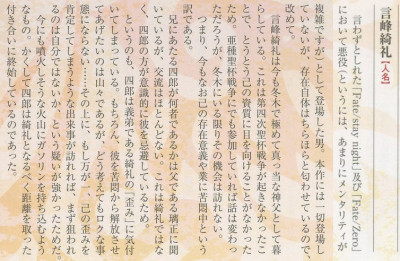 言峰綺礼【人名】
　言わずとしれた『Fate/stay night』及び『Fate/Zero』
において悪役（というには、あまりにメンタリティが
複雑ですが）として登場した男。本作には一切登場し
ていないが、存在自体はちらほらと匂わせているので、
改めて。
　言峰綺礼は今も冬木で極めて真っ当な神父として暮
らしている。これは第四次聖杯戦争が起きなかったこ
とで、とうとう己の資質に目を向けることがなかった
ため。亜種聖杯戦争にでも参加していれば話は変わっ
ただろうが、冬木にいる限りその機会は訪れない。
　つまり、今もなお己の存在意義や業に苦悶中という
訳である。
　兄にあたる四郎が何者であるかは父である璃正に聞
いているが、交流はほとんどない。これは綺礼ではな
く、四郎の方が意識的に彼を忌避しているため。
　というのも、四郎は義弟である綺礼の『歪み』に気付
いてしまっている。もちろん、彼を苦悶から解放させ
てあげたいのは山々であるが、どう考えてもロクな事
態にならない……その上に、もしも万が一、己の歪みを
肯定してしまうような出来事が訪れれば、まず狙われ
るのは自分ではないか、という疑いが強かったためだ。
　今にも噴火しそうな火山にガソリンを持ち込むよう
なもの。かくして四郎は綺礼となるべく距離を取った
付き合いに終始しているのであった。